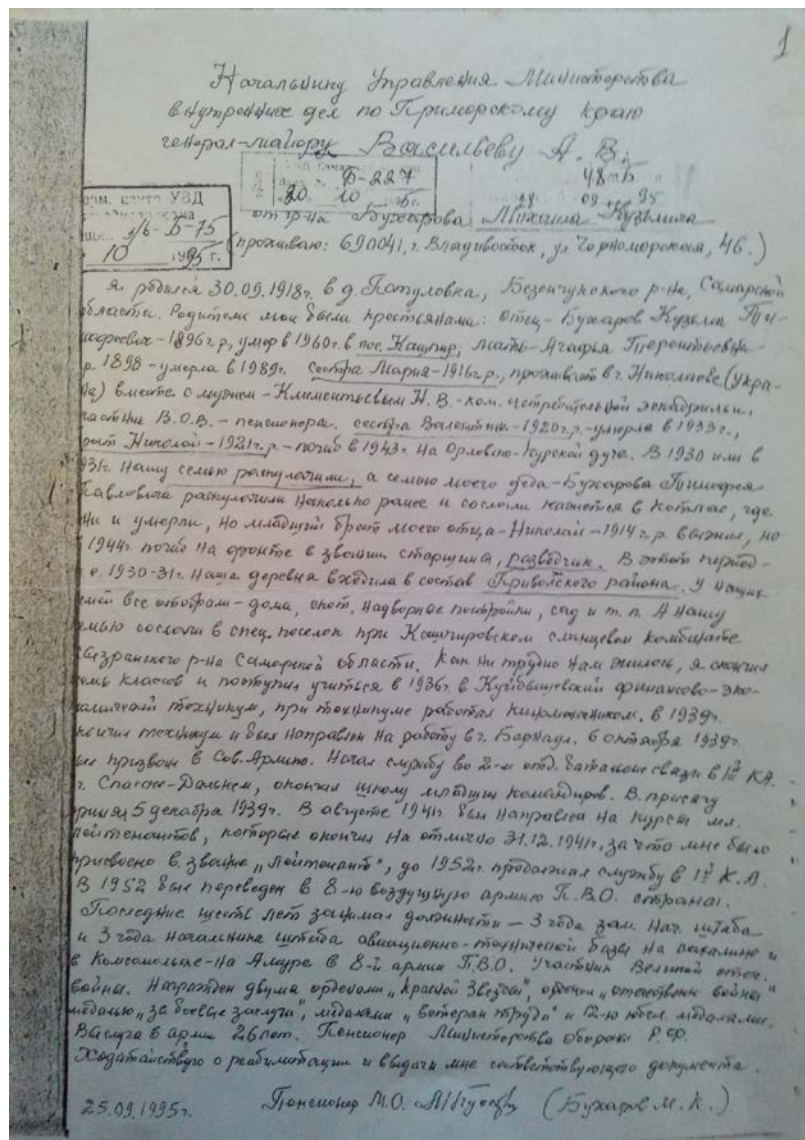 1
Начальнику Управления Министерства
внутренних дел по Приморскому краю
генерал-майору Васильеву А. В.
Б-227
20 10
48тБ
28 09 95
УВД
1/6-Б-75
10 1995 г.
от гр-на Бухарова Михаила Кузьмича
(проживаю: 690041, г. Владивосток, ул. Черноморская, 46.)
Я родился 30.09.1918г. в д. Патуловка, Безенчукского р-на, Самарской
области. Родители мои были крестьянами: отец - Бухаров Кузьма Тим-
офеевич - 1896г.р., умер в 1960г. в пос. Кашпир, мать - Агафья Терентьевна
р. 1898 - умерла в 1989г. сестра Мария - 1916г.р., проживает в г. Николаеве (Укра-
на) вместе с мужем - Климентьевым Н. В. - ком. истребительной эскадрильи,
частник В.О.В. - пенсионеры. сестра Валентина - 1920г.р. - умерла в 1933г.,
рат Николай - 1921г.р. - погиб в 1943г. на Орловско-Курской дуге. В 1930 или в
931г. нашу семью раскулачили, а семью моего деда - Бухарова Тимофея
Павловича раскулачили несколько ранее и сослали кажется в Котлас, где
они и умерли, но младший брат моего отца - Николай - 1914г.р. выжил, но
1944г. погиб на фронте в звании старшина, разведчик. В этот период -
е. 1930-31г. наша деревня входила в состав Приволжского района. У наших
емей все отобрали - дома, скот, надворные постройки, сад и т.п. А нашу
емью сослали в спец. поселок при Кашпировском сланцевом комбинате
ызранского р-на Самарской области. Как ни трудно нам жилось, я окончил
емь классов и поступил учиться в 1936г. в Куйбышевский финансово-эко-
омический техникум, при техникуме работал киномехаником. в 1939г.
ончил техникум и был направлен на работу в г. Барнаул. 6 октября 1939г.
ыл призван в Сов. Армию. Начал службу во 2-м отд. батальоне связи в 1й КА.
г. Спасске-Дальнем, окончил школу младших командиров. В. присягу
принял 5 декабря 1939г. В августе 1941г. был направлен на курсы мл.
лейтенантов, которые окончил на отлично 31.12.1941г, за что мне было
присвоено в. звание „лейтенант", до 1952г. продолжал службу в 1й К.А.
В 1952 был переведен в 8-ю воздушную армию П.В.О. страны.
Последние шесть лет занимал должности - 3 года зам. нач. штаба
и 3 года начальника штаба авиационно-технической базы на Сахалине и
в Комсомольске-на Амуре в 8-й армии П.В.О. Участник Великой отеч.
войны. Награжден двумя орденами „Красной Звезды", орденом „отечествен. войны"
медалью „за боевые заслуги", медалями „ветеран труда" и 12-ю юбил. медалями.
Выслуга в армии 26 лет. Пенсионер Министерства обороны Р.Ф.
Ходатайствую о реабилитации и выдачи мне соответствующего документа.
25.09.1995г. Пенсионер М.О. (Бухаров М. К.)